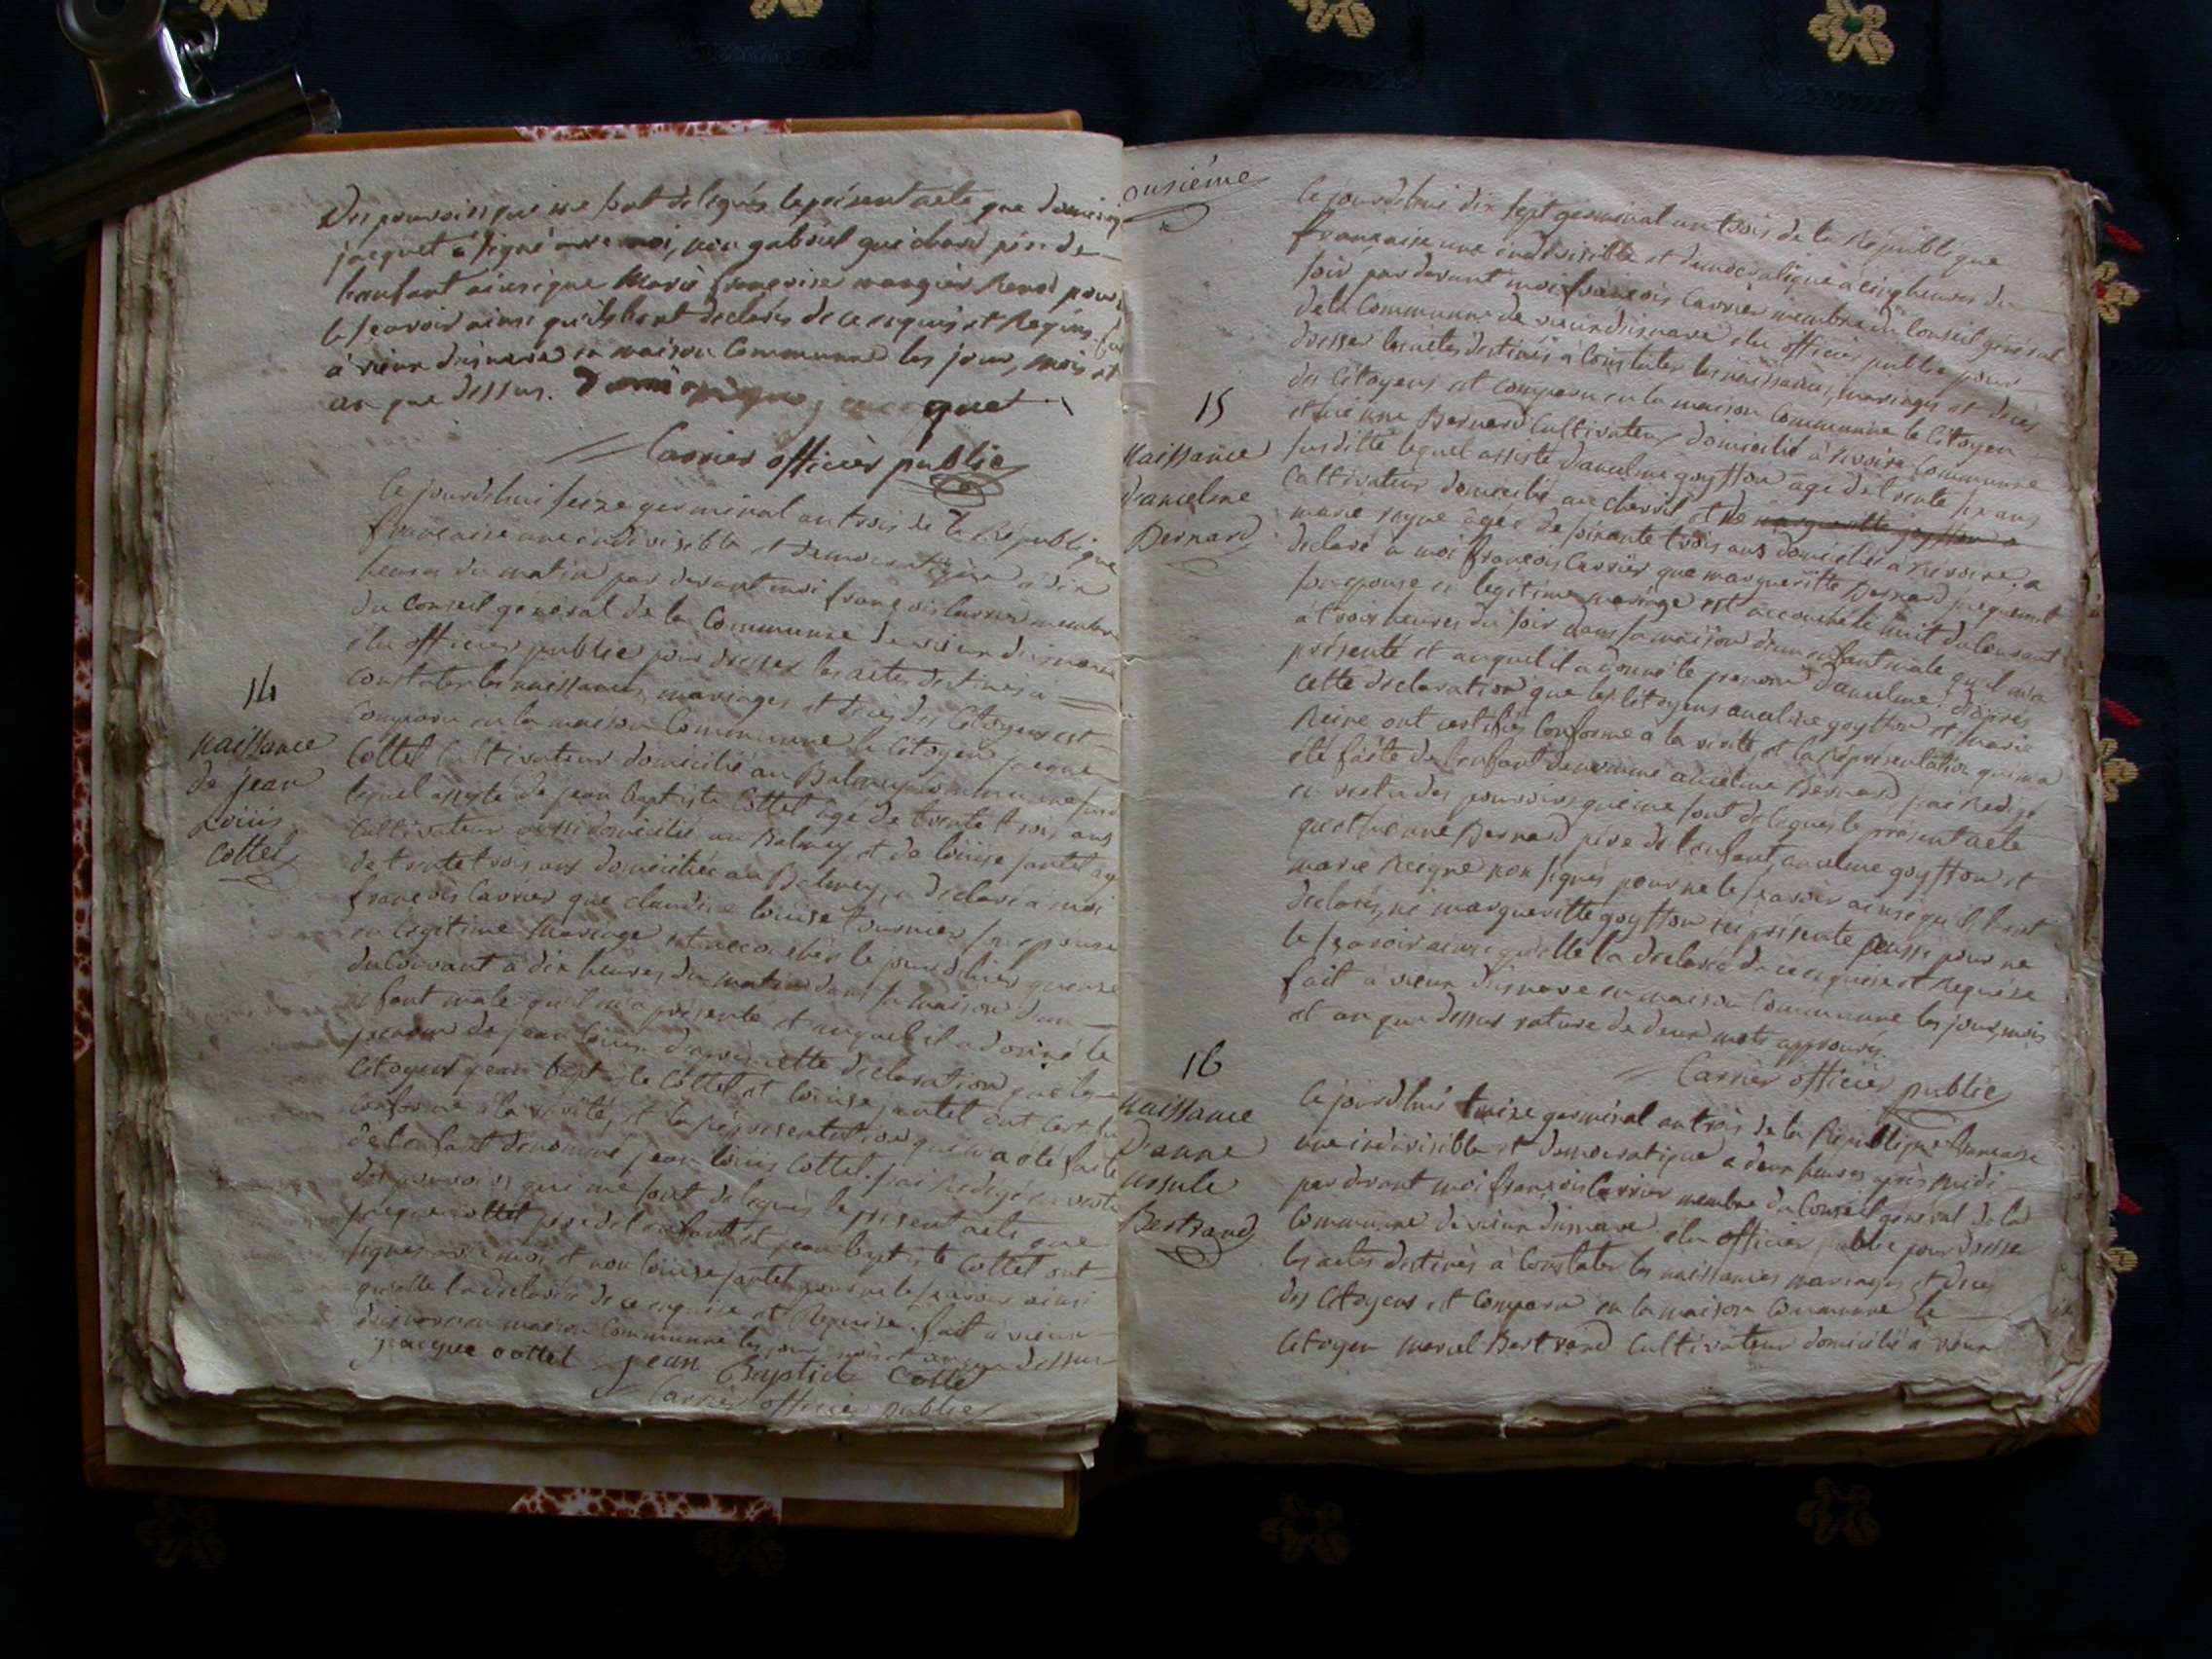 Des pouvoirs qui me sont delegués le présent acte que dominique
jacquet a signé avec moi, non gabriel guichard père de
l'enfant ainsi que Marie françoise mangier Renod pour
le sçavoir ainsi qu'ils l'ont declarés de ce enquis et Requis fait
à vieux disnave en maison Communne les jour, mois et
an que dessus. Dominique jacquet
Carrier officier public
14
naissance
de jean
Louis
Cottet
Ce jourdhui seize germinal an trois de la République
françaisse une indivisible et democratique a dix
heures du matin par devant moi françois Carrier membre
du Conseil général de la Communne de vieux disnave
élu officier public pour dresser les actes destinés à
constater les naissances, mariages et décès des Citoyens est
Comparu en la maison Communne le Citoyen jacque
Cottet Cultivateur domicilié au Balmey Communne susd
lequel assisté de jean baptiste Cottet âgé de trente trois ans
Cultivateur aussi domicilié au Balmey et de Louise jantet agé
de trente trois ans domiciliée au Balmey, a déclaré à moi
françois Carrier que claudine Louise tournier son epouse
en legitime Mariage est accouchée le jourdhier quinze
du Courant à dix heures du matin dans sa maison d'un
enfant male qu'il m'a présenté et auquel il a donné le
prenom de jean Louis. D'après cette declaration que les
Citoyens jean baptiste Cottet et Louise jantet ont certifié
conforme à la vérité, et la représentation qui m'a été faite
de l'enfant denommé jean Louis Cottet. j'ai Redigé en vertu
des pouvoirs qui me sont delegués le présent acte que
jacque Cottet père de l'enfant et jean baptiste Cottet ont
signés avec moi et non Louise jantet pour ne le sçavoir ainsi
qu'elle l'a declarée de ce enquise et Requise. fait à vieux
disnave en maison Communne les jour, mois et an que dessus
jacque cottet jean Baptiste Cottet
Carrier officier public
onsiéme
15
Naissance
d'ancelme
Bernard
Ce jourdhui dix sept germinal an trois de la République
françaisse une indivisible et democratique à cinq heures du
soir par devant moi françois Carrier membre du Conseil général
de la Communne de vieux disnave élu officier public pour
dresser les actes destinés à Constater les naissances, mariages et décès
des Citoyens est comparu en la maison Communne le Citoyen
etienne Bernard Cultivateur domicilié à revoire Communne
susditte lequel assisté d'ancelme goyffon âgé de trente six ans
Cultivateur domicilié au chervil et de margueritte goyffon a
marie reyne âgée de soixante trois ans domiciliée a revoire. a
declaré a moi françois Carrier que margueritte Bernard jacquemet
son epouse en legitime mariage est accouchée le huit du Courant
à trois heures du soir dans sa maison d'un enfant male qu'il m'a
présenté et auquel il a donné le prenom d'ancelme. D'après
cette declaration que les Citoyens ancelme goyffon et Marie
Reine ont certifiés Conforme a la vérité, et la Représentation qui m'a
été faite de l'enfant denommé ancelme Bernard, j'ai Redigé
en vertu des pouvoirs qui me sont delegués le présent acte
qu'etienne Bernard père de l'enfant, ancelme goyffon et
marie Reigne non signés pour ne le sçavoir ainsi qu'ils l'ont
declarés, ni margueritte goyffon ici présente Aussi pour ne
le sçavoir ainsi qu'elle l'a declarée de ce enquise et Requise
fait a vieux disnave en maison Communne les jour, mois
et an que dessus rature de deux mots approuvés.
Carrier officier public
16
Naissance
D'anne
ursule
Bertrand
Ce jourdhui treize germinal an trois de la République française
une indivisible et democratique a deux heures après midi
par devant moi françois Carrier membre du Conseil général de la
Communne de vieux disnave élu officier public pour dresser
les actes destinés à Constater les naissances mariages et décès
des Citoyens est Comparu en la maison Communne le
Citoyen marcel Bertrand Cultivateur domicilié à vieux